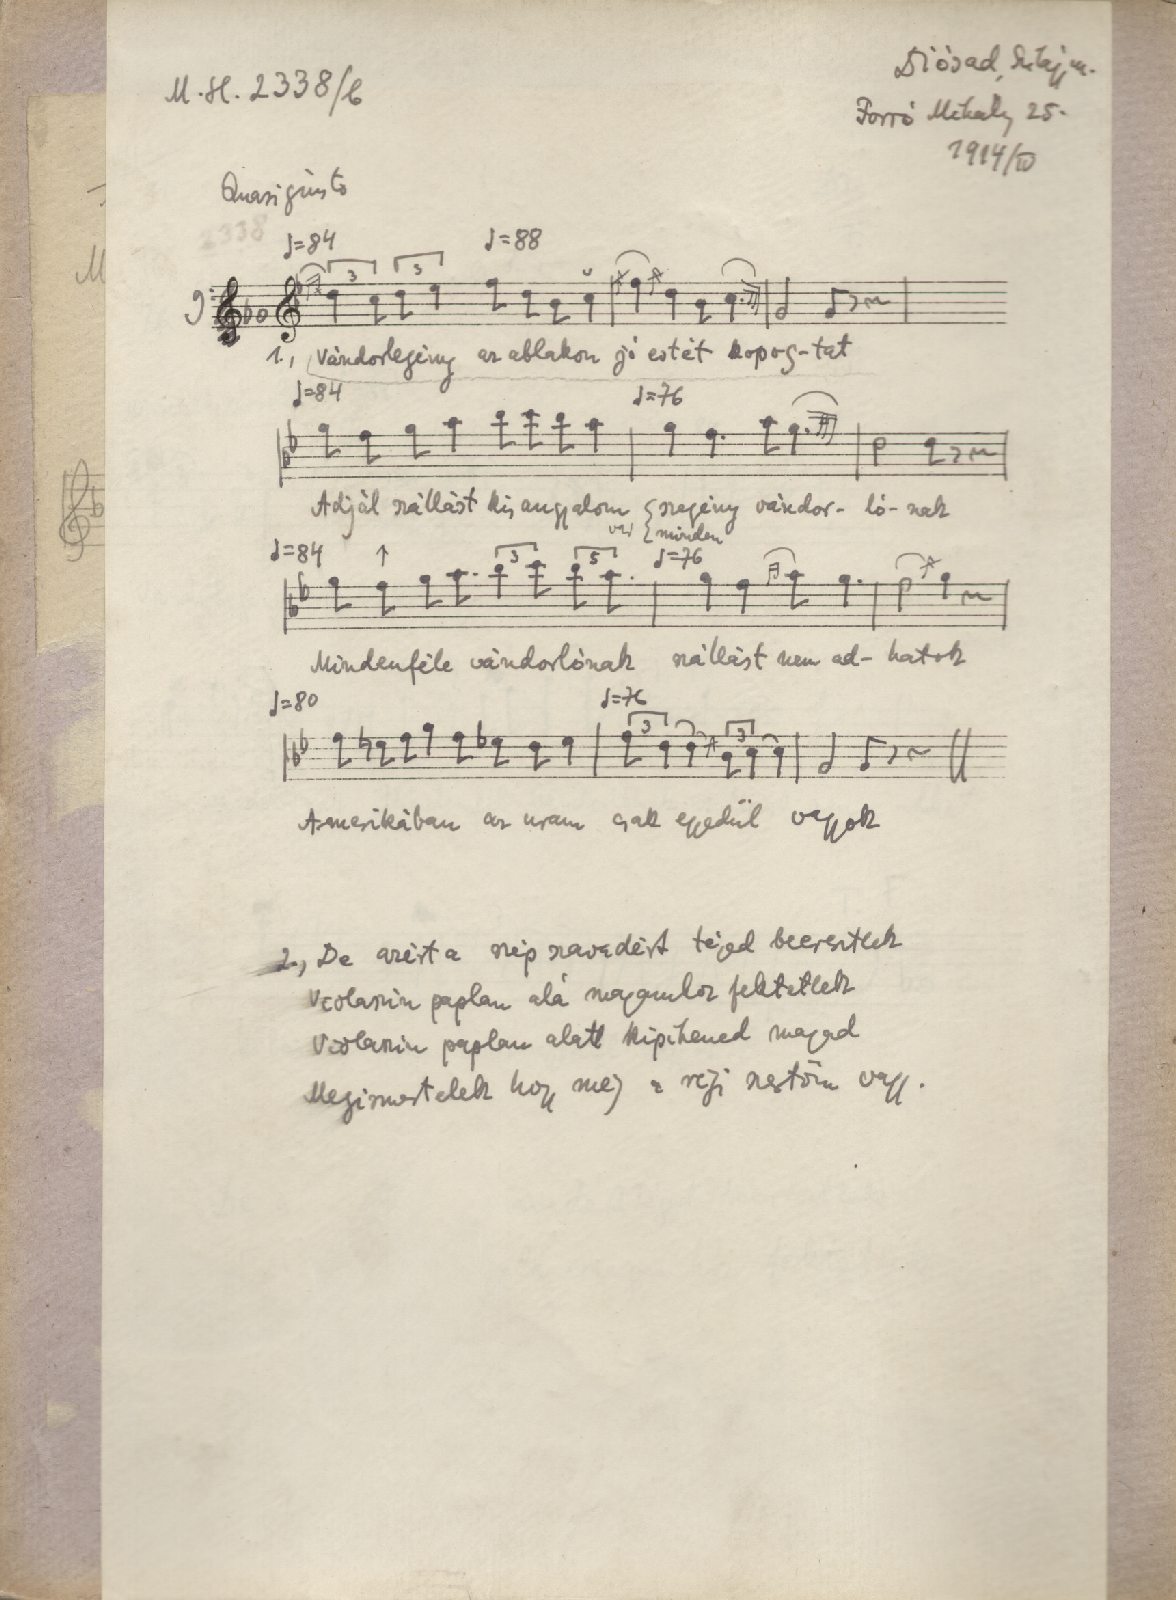 M.H. 2338/b
Diósad, Szilágy m.
Forró Mihály 25.
1914/IV
Quasi giusto
2338
♩=84 ♩=88
3 3
1., Vándorlegény az ablakon jó estét kopog-tat
♩=84 ♩=76
Adjál szállást kis angyalom szegény vándor- ló- nak
var minden
♩=84 ♩=76
3 5
Mindenféle vándorlónak szállást nem ad- hatok
♩=80 ♩=76
3 3
Amerikában az uram csak egyedül vagyok
2., De azért a szép szavadért téged beeresztlek
Violaszin paplan alá magamhoz fektetlek
Violaszin paplan alatt kipihened magad
Megismertelek hogy még a régi szeretőm vagy.
M